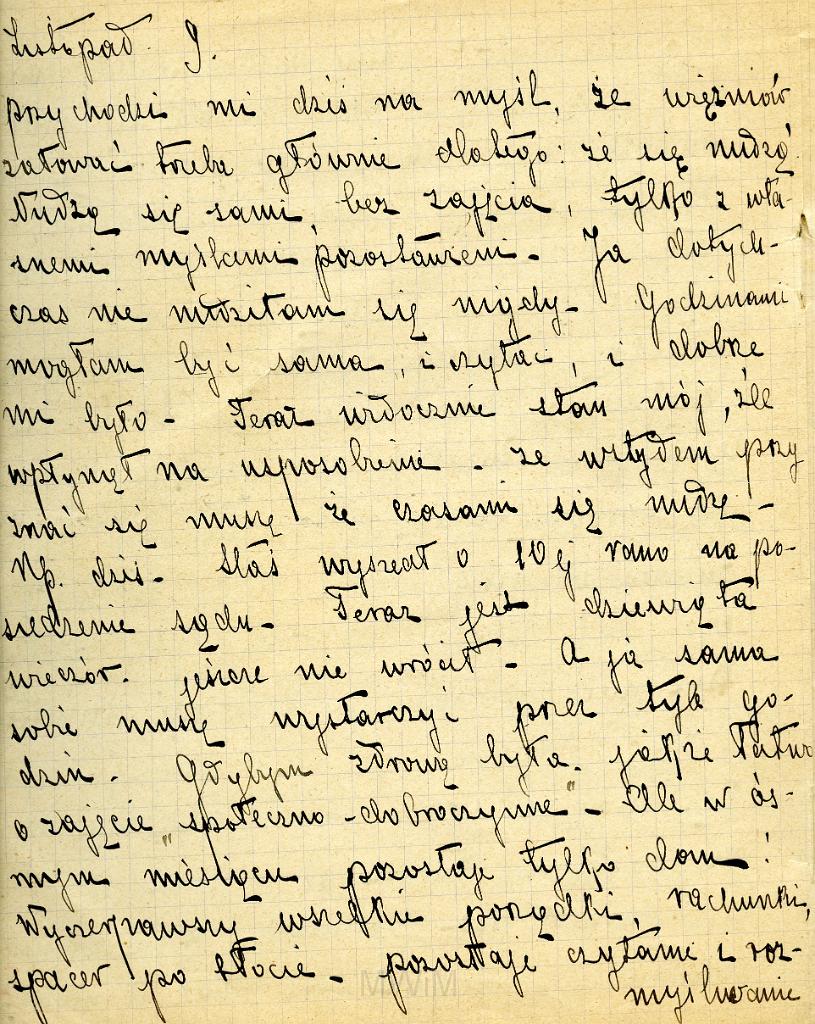 Listopad. 9.
przychodzi mi dziś na myśl, że więzniów
żałować trzeba głównie dlatego: że się nudzą.
Nudzą się sami, bez zajęcia, tylko z wła-
snemi myślami pozostawieni - Ja dotych-
czas nie nudziłam się nigdy - Godzinami
mogłam być sama, i czytać, i dobrze
mi było - Teraz widocznie stan mój, źle
wpłynął na usposobienie - ze wstydem przy
znać się muszę że czasami się nudzę -
Np. dziś - Staś wyszedł o 10ej rano na po-
siedzenie sądu - Teraz jest dziewiąta
wieczór. jeszcze nie wrócił - A ja sama
sobie muszę wystarczyć przez tyle go-
dzin - Gdybym zdrową była. jakże łatwo
o zajęcie "społeczno-dobroczynne" - Ale w ós-
mym miesiącu pozostaje tylko dom!
Wyczerpawszy wszelkie porządki, rachunki,
spacer po błocie - pozostaje czytanie i roz-
myśliwanie
MWiM